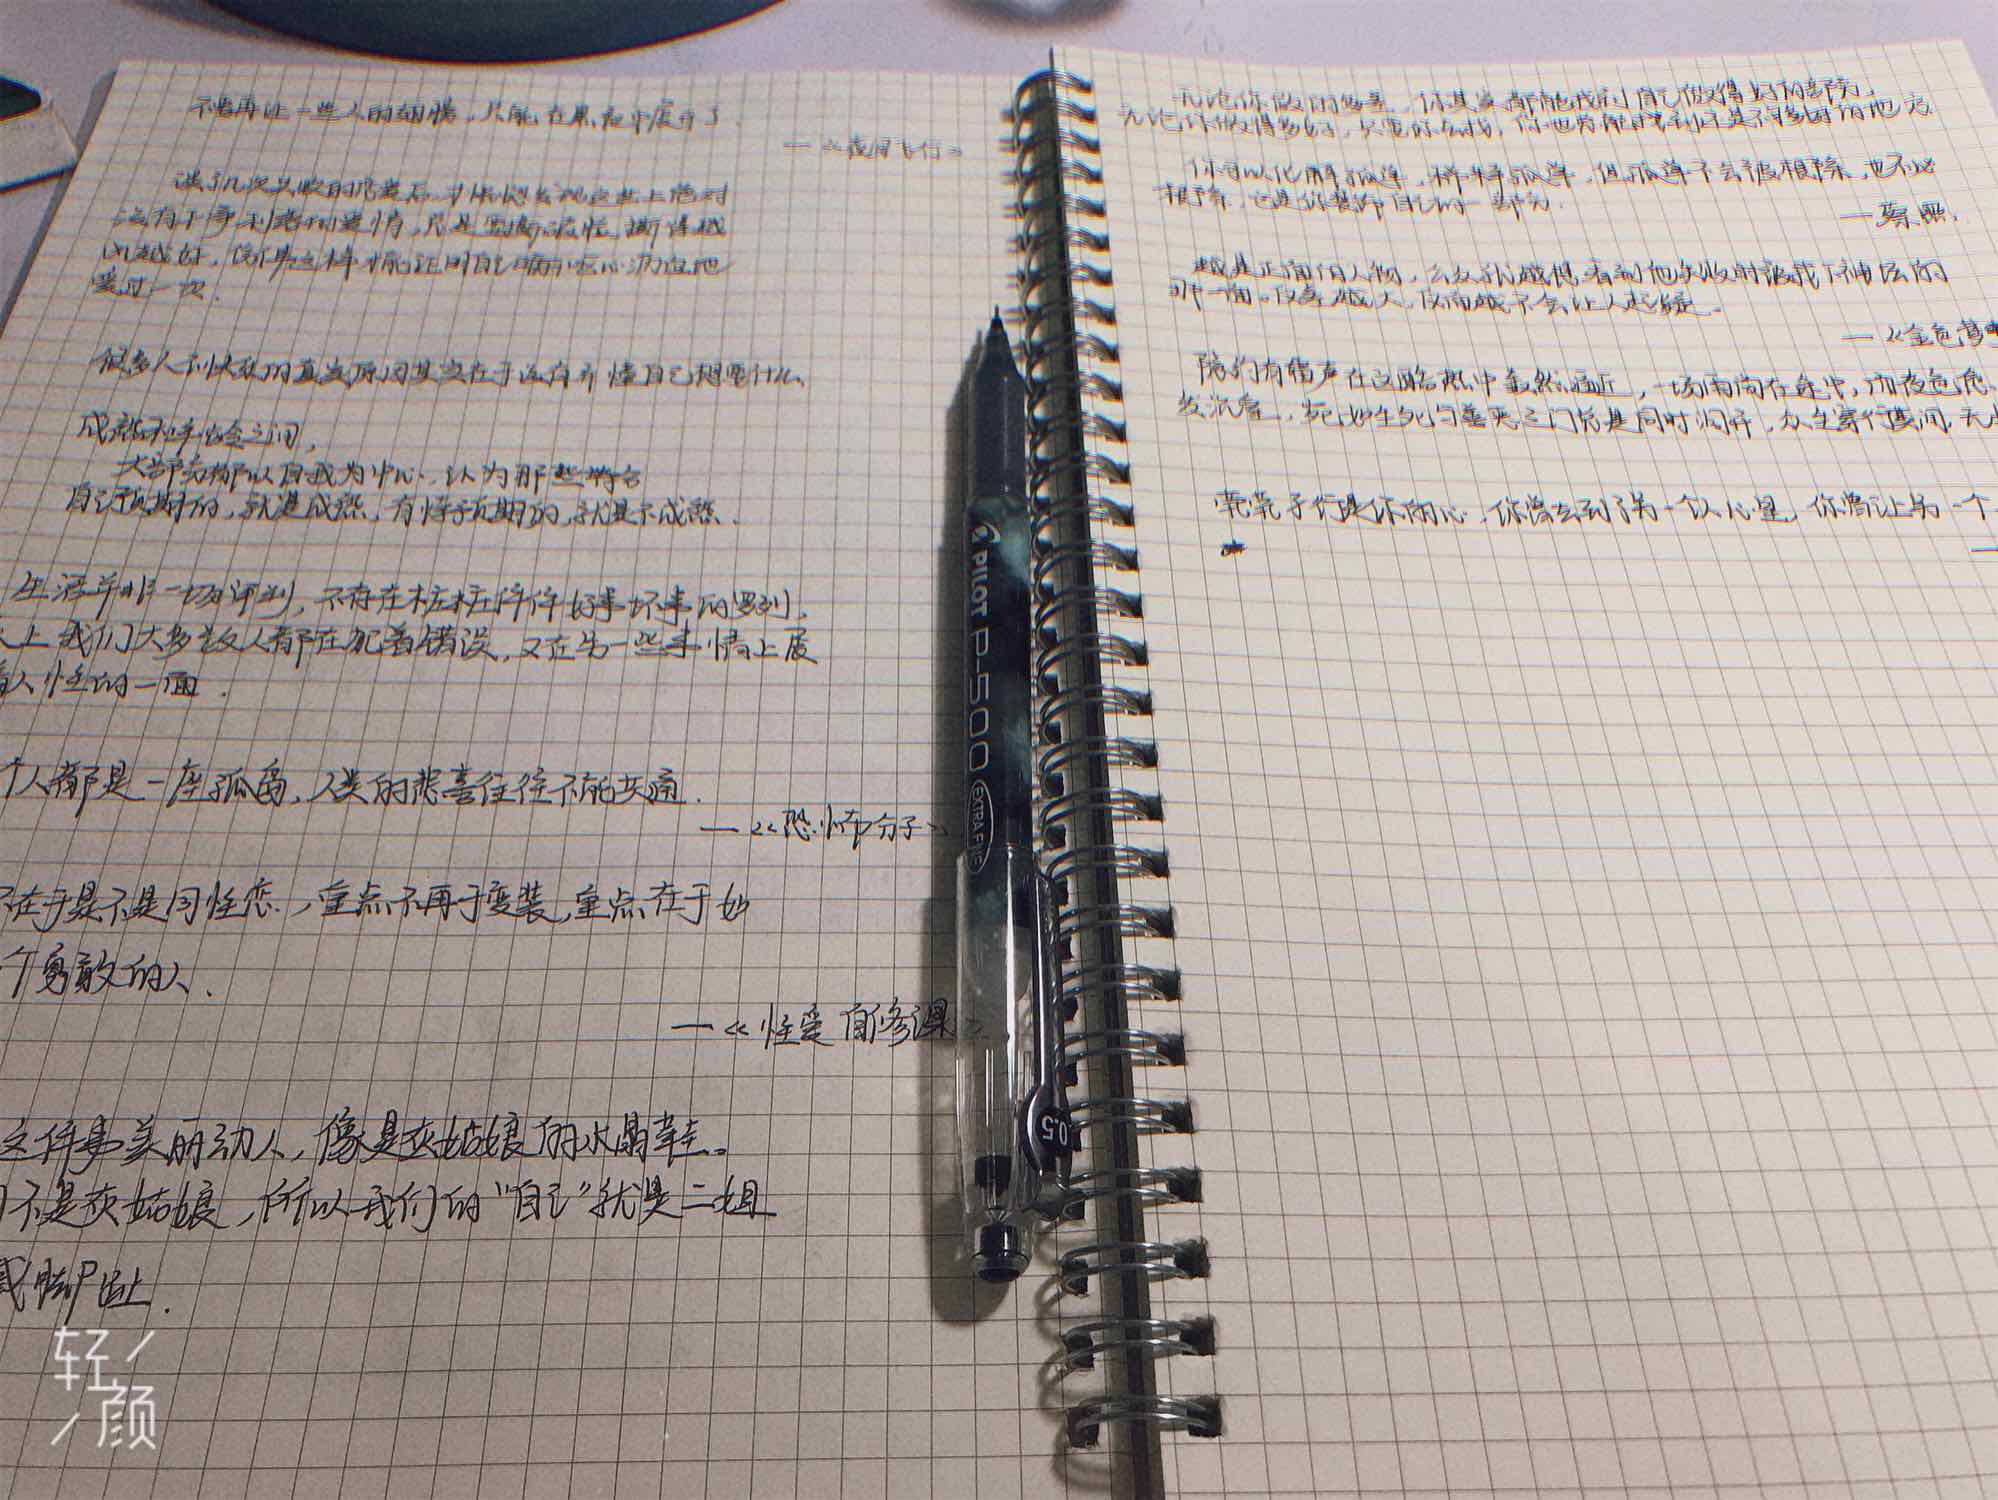 不要再让一些人的翅膀，只能在黑夜中展开了.
—《夜间飞行》
谈了几次失败的恋爱后，才恍然发现这世上绝对
没有干净利落的爱情，只是要断 断得越
越好，
爱过一次.
很多人不快乐的真实原因其实在于没有弄懂自己想要什么.
成熟和年龄之间，
大部分都以自我为中心，认为那些符合
自己预期的，就是成熟，有悖预期的，就是不成熟.
生活并非一场评判，不存在桩桩件件好事坏事的罗列，
上我们大多数人都在犯着错误，又在另一些事情上展
人性的一面.
个人都是一座孤岛，人类的悲喜往往不能共通.
—《恐怖分子》
不在于是不是同性恋，重点不再于变装，重点在于
个勇敢的人.
—《性爱自修课》
这件事美丽动人，像是灰姑娘的水晶鞋。
不是灰姑娘，所以我们的“自己”就是二姐
或脚趾.
无论你做的多差，你其实都能找到自己做得好的部分，
无论你做得多好，只要你去找，你也另能找到还是不够好的地方.
你可以化解孤单，排解孤单，但孤单不会被根除，也不必
根除，它是你装部自己的一部分.
—蔡
越是正面的人物，公众就越想看到他失败时被拉下神坛的
那一面。反差越大，反而越不会让人起疑.
—《金色梦
隐约有雷声在这酷热中虽然逼近，一场雨尚在途中，而夜色
发沉 生死与善恶之门总是同时洞开，众生穿行其间，无
茕茕孑行是你的心，你曾去到了另一个人心里，你曾让另一个
PILOT P-500 EXTRA FINE
0.5
轻颜